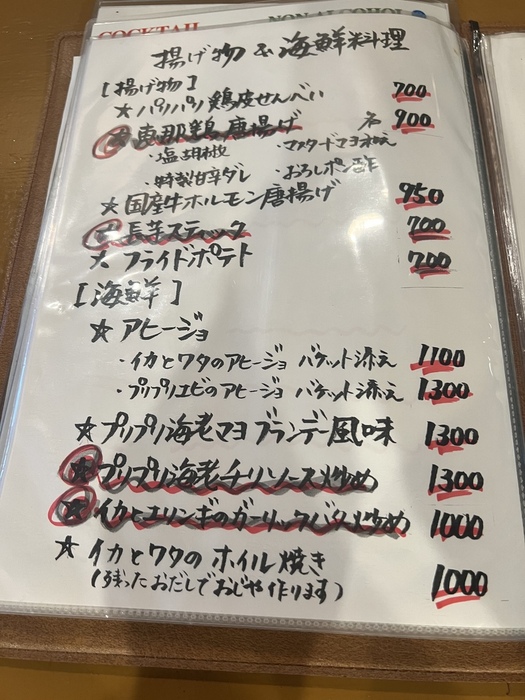 COCKTAIL NON-ALCOHOL
揚げ物 & 海鮮料理
[揚げ物]
★パリパリ鶏皮せんべい 700
★恵那鶏唐揚げ 各900
・塩胡椒 ・マスタードマヨ和え
・特製甘辛ダレ ・おろしポン酢
★国産牛ホルモン唐揚げ 950
★長芋スティック 700
★フライドポテト 700
[海鮮]
★アヒージョ
・イカとワタのアヒージョ バケット添え 1100
・プリプリエビのアヒージョ バケット添え 1300
★プリプリ海老マヨ ブランデー風味 1300
★プリプリ海老チリソース炒め 1300
★イカとエリンギのガーリックバター炒め 1000
★イカとワタのホイル焼き 1000
(残ったおだしでおじや作ります)